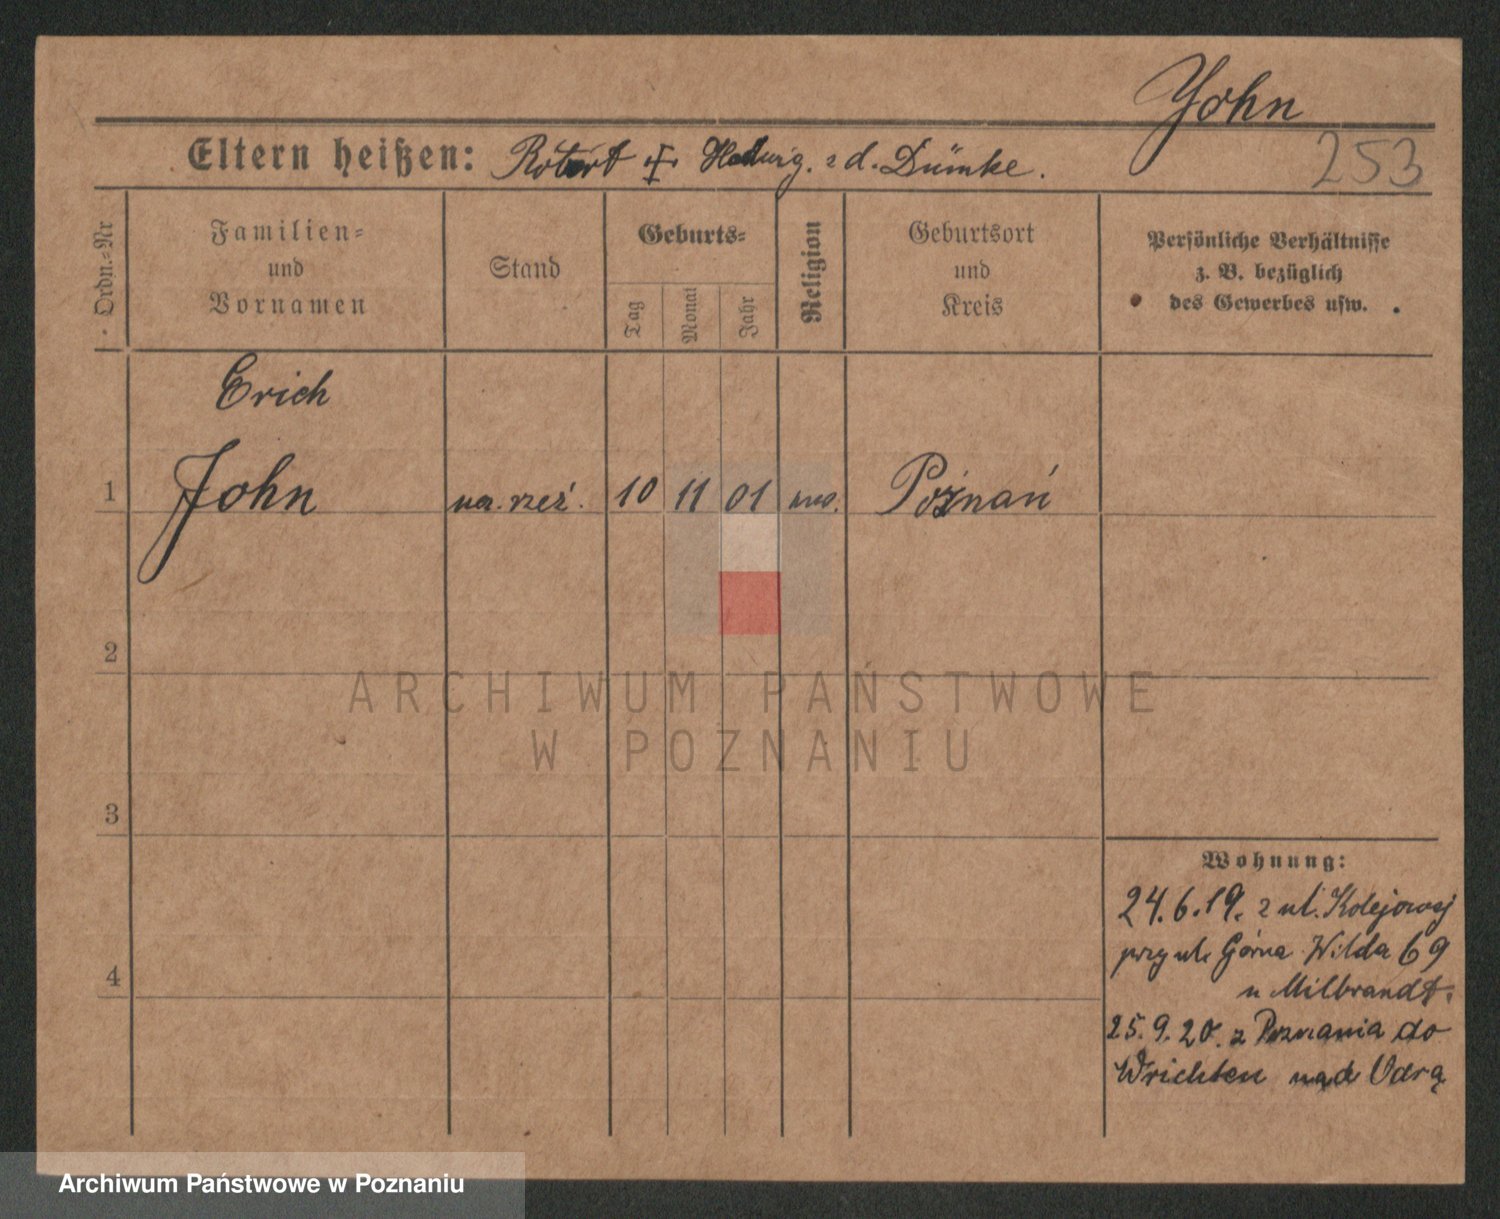 John
Eltern heißen: Robert +. Hedwig. z d. Dümke.
253
Ordn.=Nr
Familien=
und
Vornamen
Stand
Geburts=
Tag
Monat
Jahr
Religion
Geburtsort
und
Kreis
Persönliche Verhältnisse
z. B. bezüglich
des Gewerbes usw.
Erich
1 John ucz. rzeź. 10 11 01 Poznań
2
3
4
Wohnung:
24.6.19. z ul. Kolejowej
przy ul. Górna Wilda 69
u Milbrandt.
25.9.20. z Poznania do
Wrichten nad Odrą
ARCHIWUM PAŃSTWOWE
W POZNANIU
Archiwum Państwowe w Poznaniu